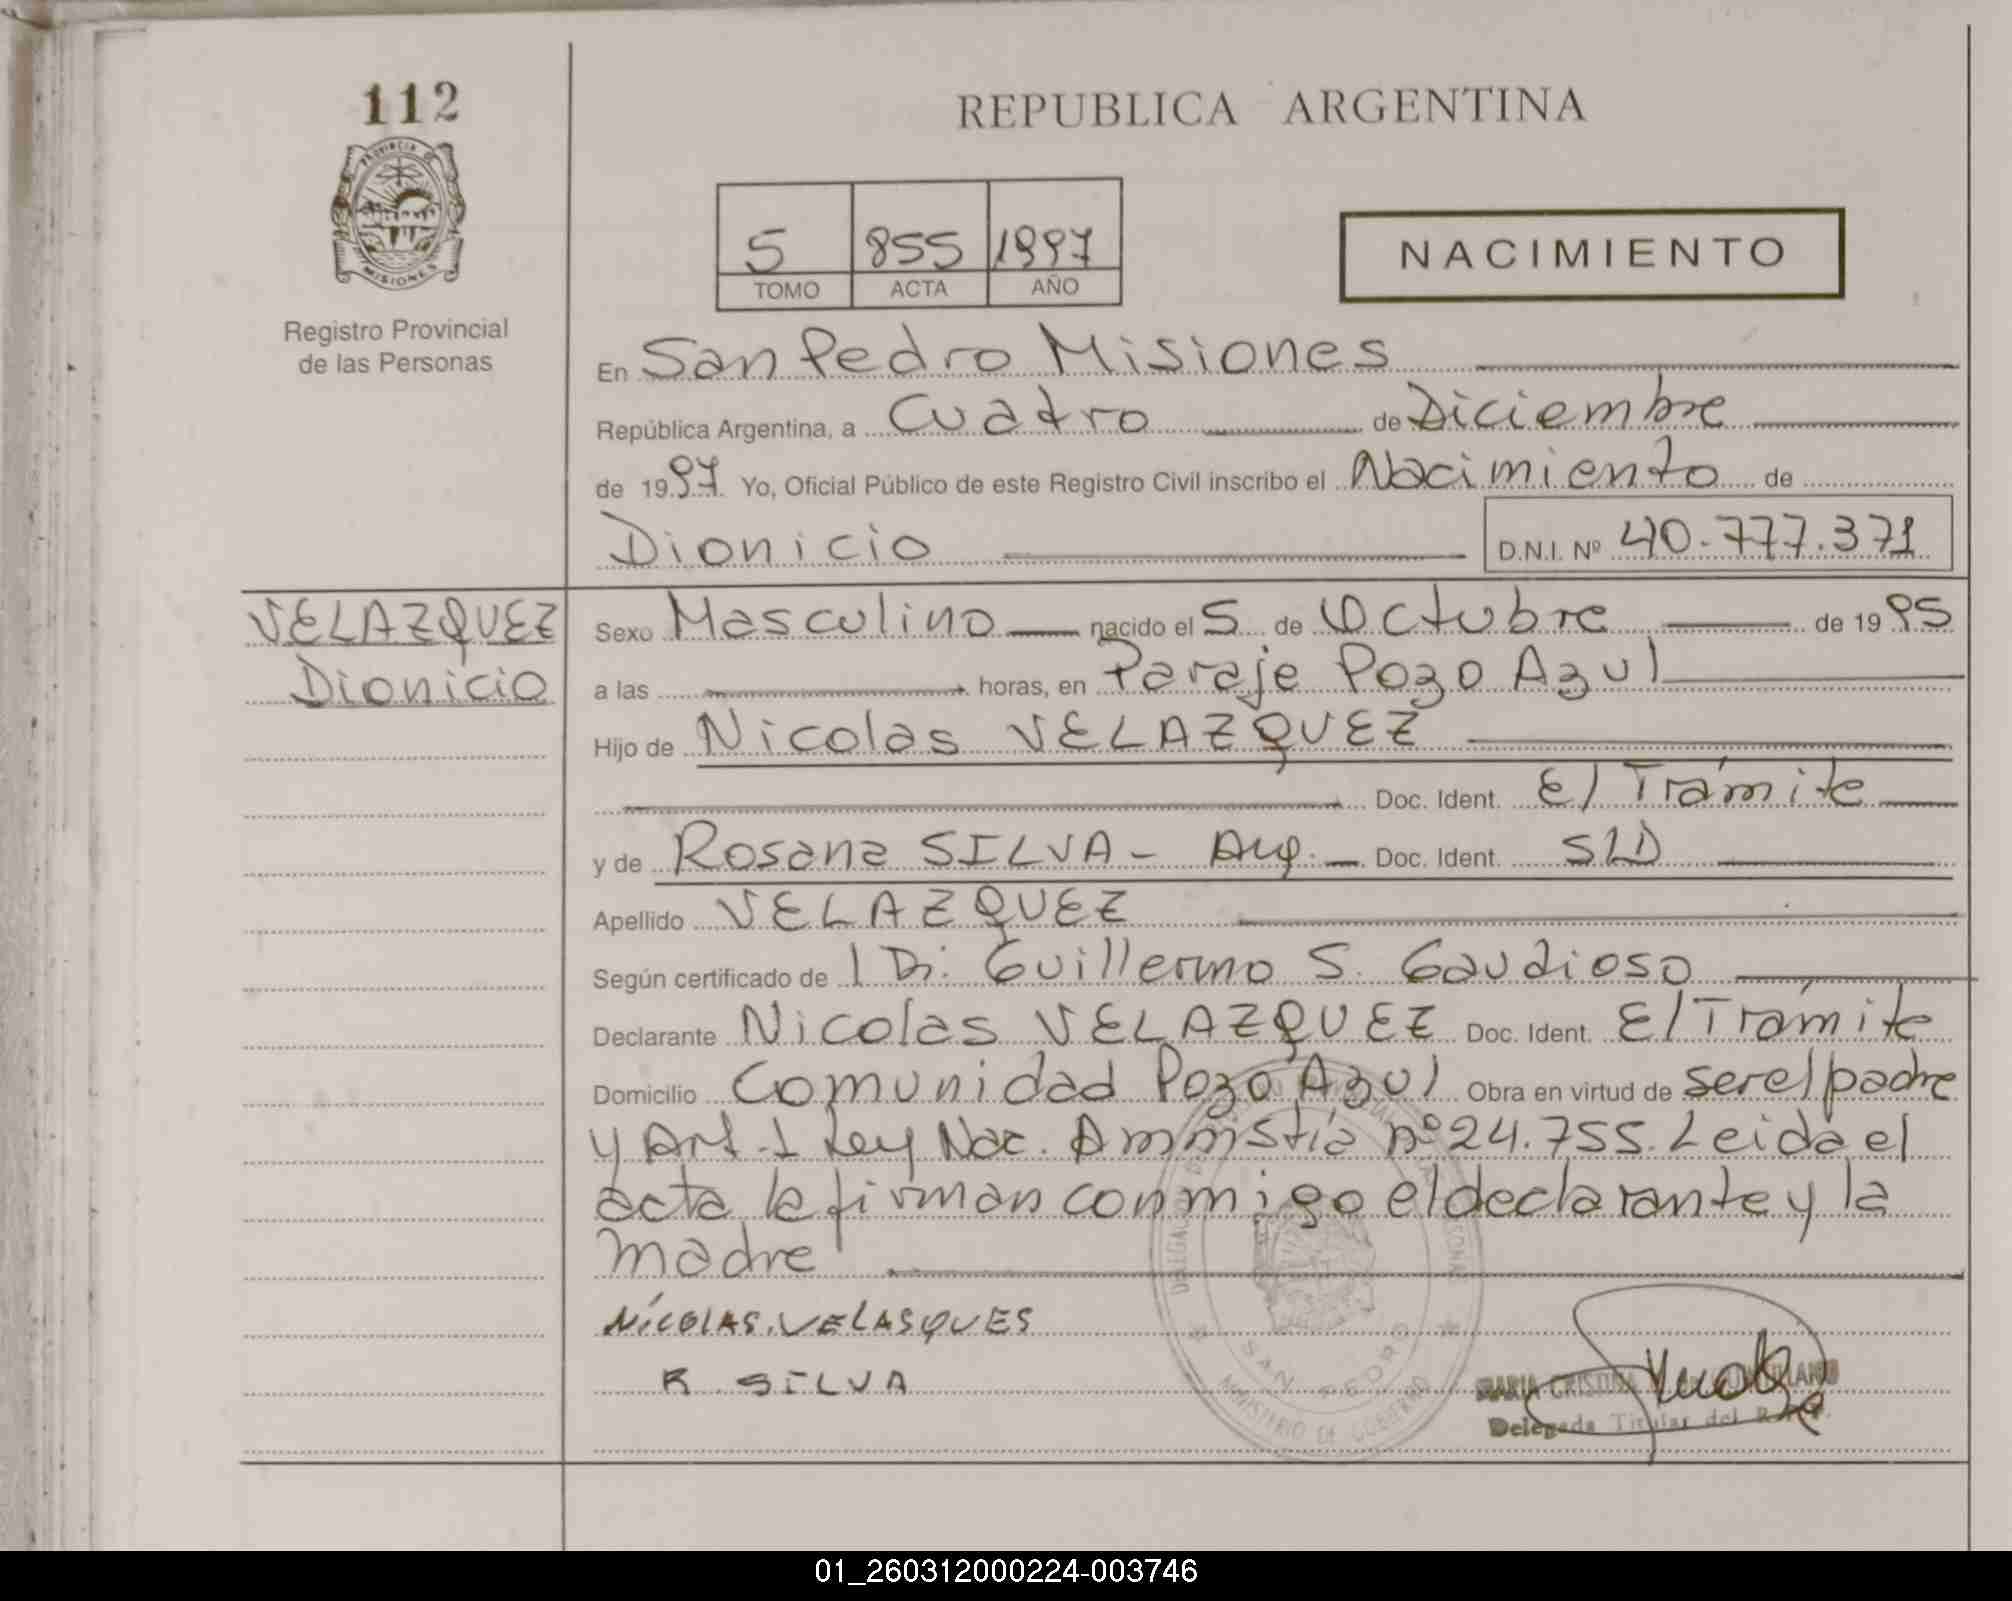 112
PROVINCIA DE
MISIONES
Registro Provincial
de las Personas
REPUBLICA ARGENTINA
5 855 1997
TOMO ACTA AÑO
NACIMIENTO
En San Pedro Misiones
República Argentina, a Cuatro de Diciembre
de 1997 Yo, Oficial Público de este Registro Civil inscribo el Nacimiento de
Dionicio D.N.I. Nº 40.777.371
VELAZQUEZ
Dionicio
Sexo Masculino nacido el 5 de Octubre de 1995
a las horas, en Paraje Pozo Azul
Hijo de Nicolas VELAZQUEZ
Doc. Ident. E/Trámite
y de Rosana SILVA - Arg. Doc. Ident. S/D
Apellido VELAZQUEZ
Según certificado de 1 Dr. Guillermo S. Gaudioso
Declarante Nicolas VELAZQUEZ Doc. Ident. E/Trámite
Domicilio Comunidad Pozo Azul Obra en virtud de ser el padre
y Art. 1 Ley Nac. Amnistía nº 24.755. Leida el
acta la firman conmigo el declarante y la
madre
NICOLAS. VELASQUES
R SILVA
SAN PEDRO
MINISTERIO DE GOBIERNO
MARIA CRISTINA
Delegada Titular del
01_260312000224-003746